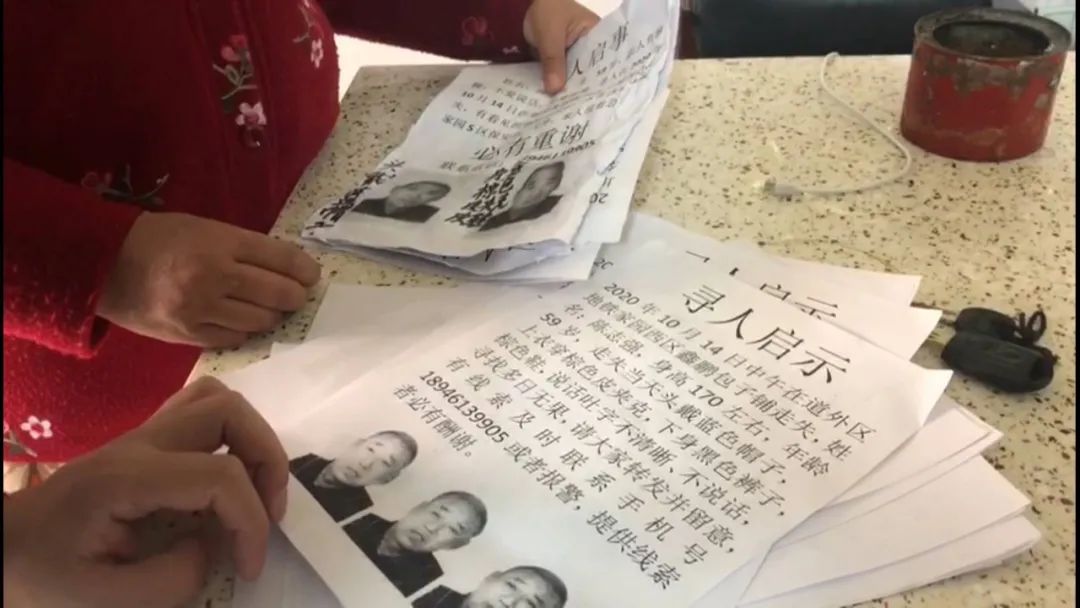 人启事
10月14日
家园5区保
必有重谢
启示
寻人启示
2020年10月14日中午在道外区
地铁家园西区鑫鹏包子铺走失,姓
名:陈志强,身高170左右,年龄
59岁,走失当天头戴蓝色帽子,
上衣穿棕色皮夹克 下身黑色裤子,
棕色鞋,说话吐字不清晰,不说话,
寻找多日无果,请大家转发并留意,
有线索及时联系手机号
18946139905或者报警,提供线索
者必有酬谢。